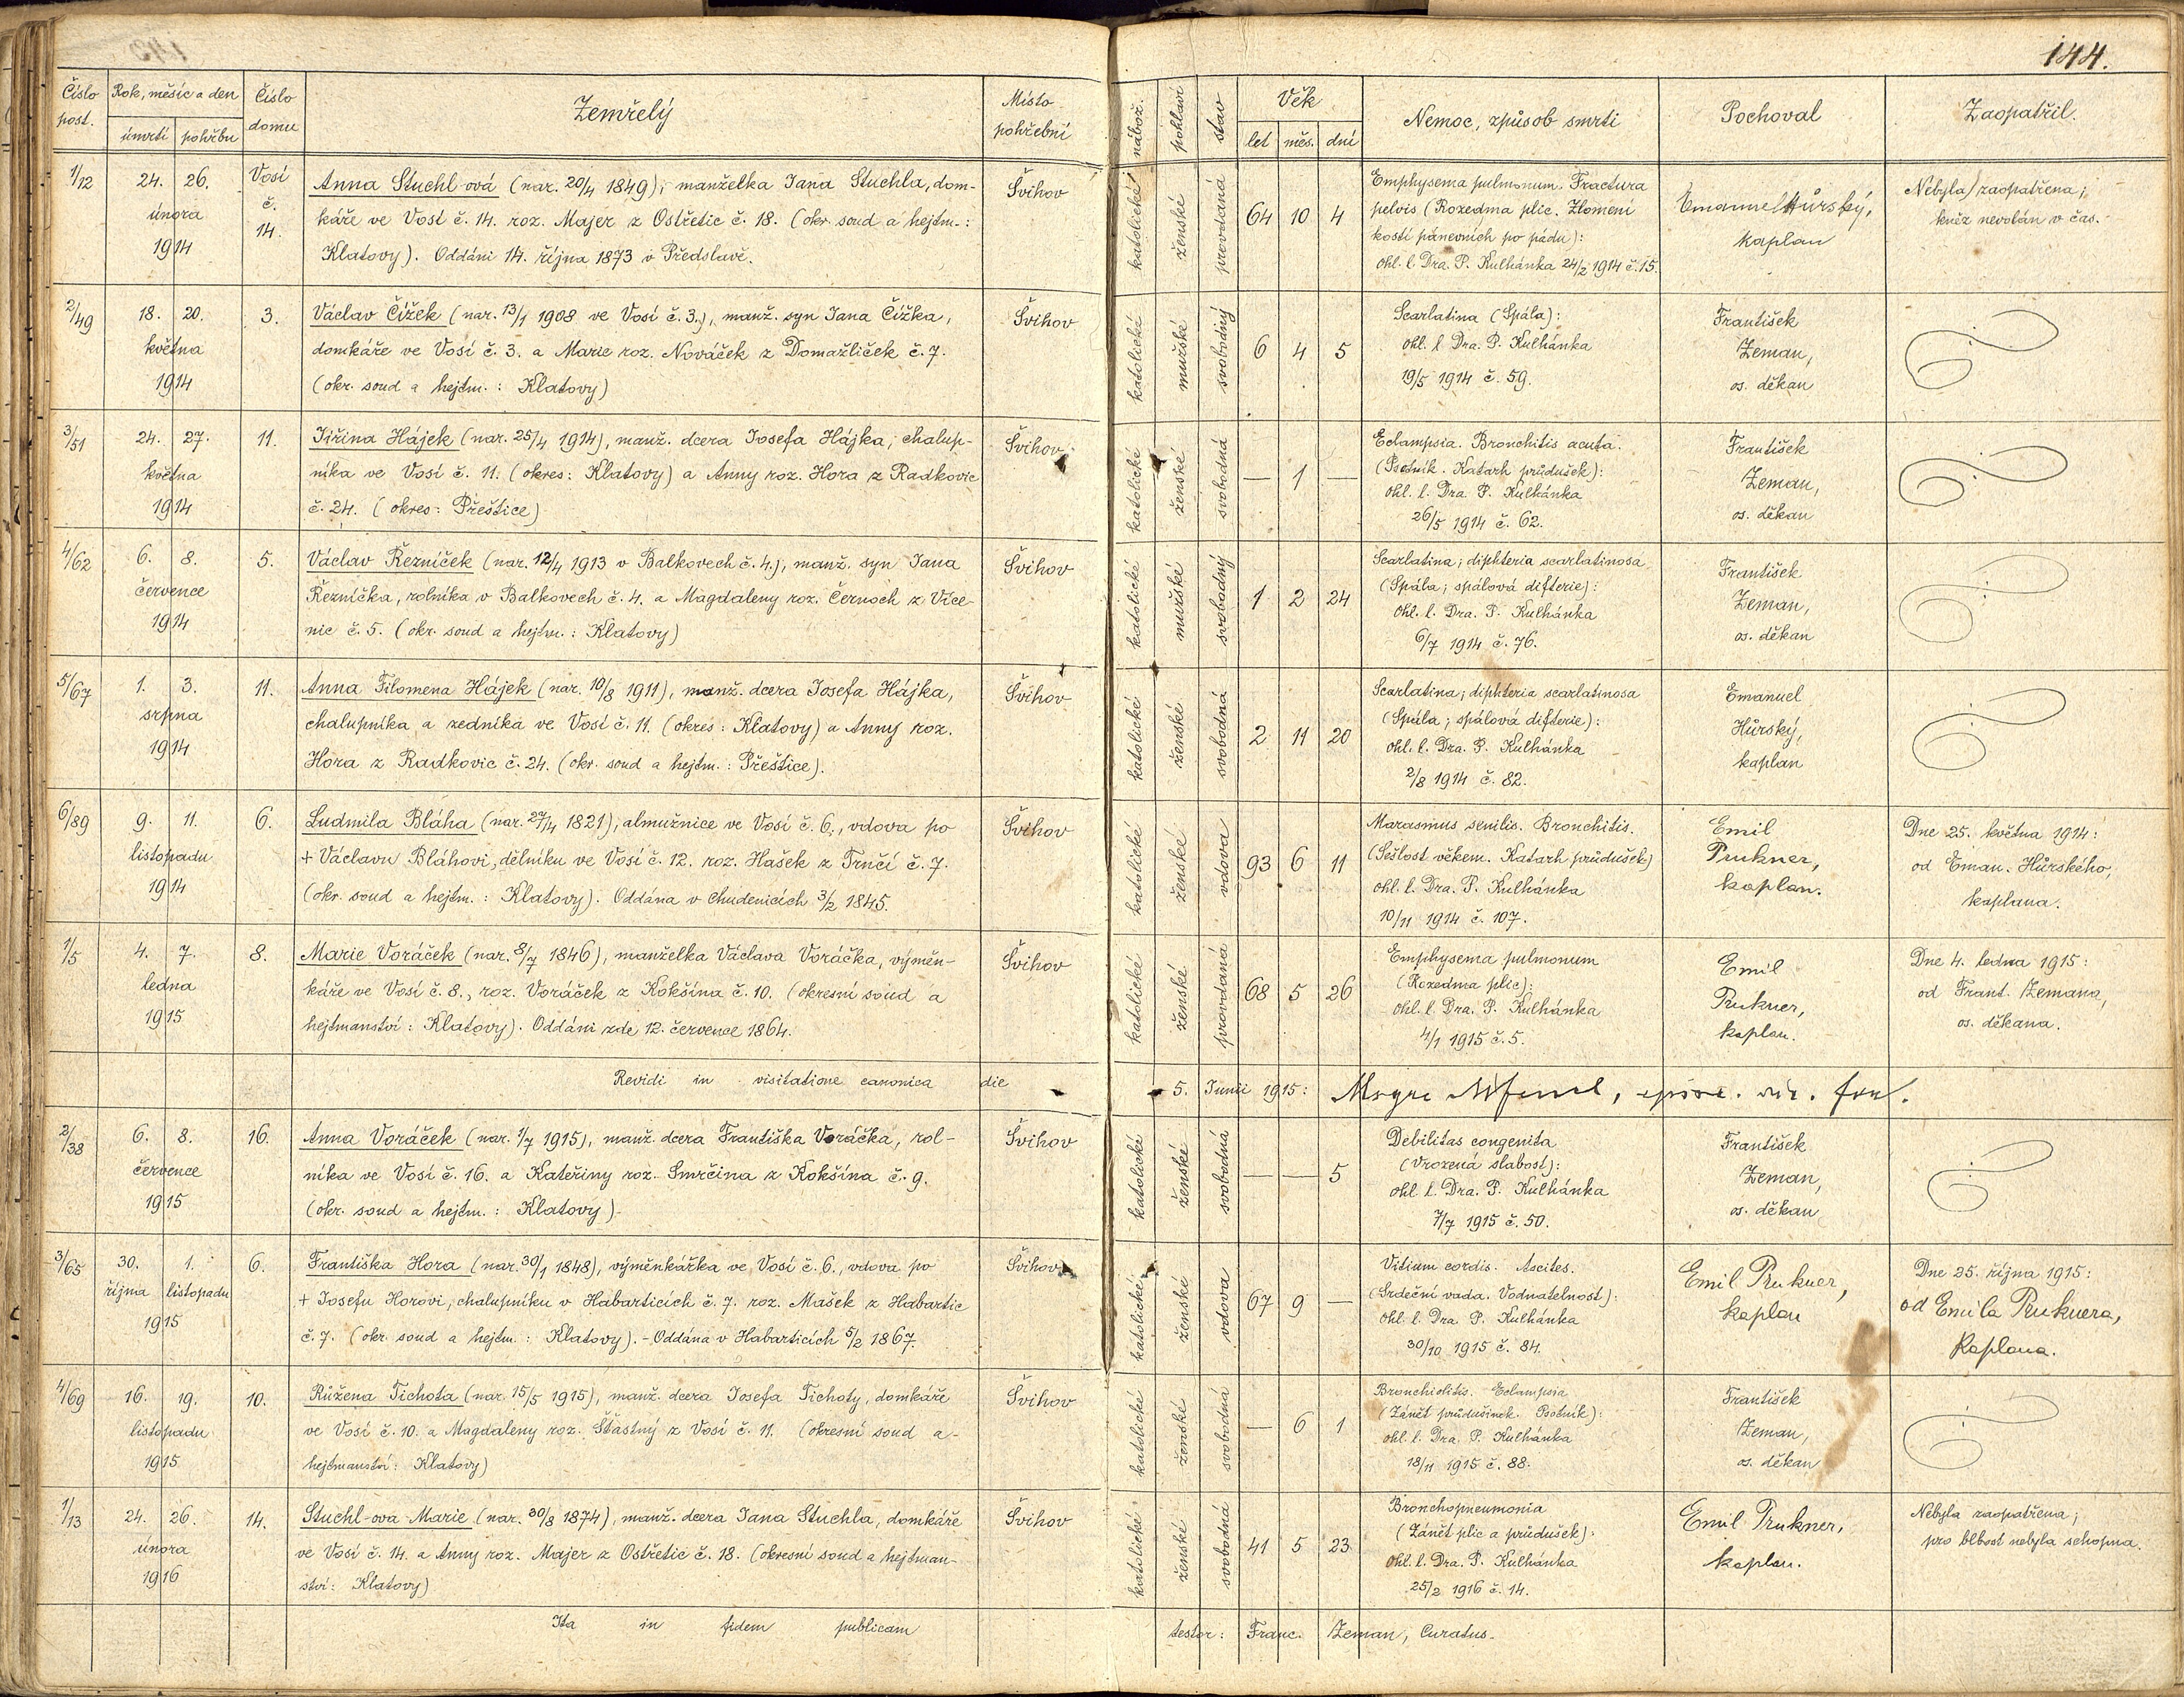 144.
Číslo post. Rok, měsíc a den úmrtí pohřbu Číslo domu Zemřelý Místo pohřební nábož. pohlaví stav Věk let měs. dní Nemoc, způsob smrti Pochoval Zaopatřil.
1/12 24. 26. února 1914 Vosí č. 14.
Anna Stuchl-ová (nar. 20/4 1849), manželka Jana Stuchla, dom-
káře ve Vosí č. 14. roz. Majer z Ostřetic č. 18. (okr. soud a hejtm.:
Klatovy). Oddáni 14. října 1873 v Předslavi.
Švihov
katolické ženské provdaná 64 10 4
Emphysema pulmonum. Fractura
pelvis (Rozedma plic. Zlomení
kostí pánevních po pádu):
ohl. l. Dra. P. Kulhánka 24/2 1914 č. 15.
Emanuel Hůrský,
kaplan
Nebyla zaopatřena;
kněz nevolán v čas.
2/49 18. 20. května 1914 3.
Václav Čížek (nar. 13/1 1908 ve Vosí č. 3.), manž. syn Jana Čížka,
domkáře ve Vosí č. 3. a Marie roz. Nováček z Domažliček č. 7.
(okr. soud a hejtm.: Klatovy)
Švihov
katolické mužské svobodný 6 4 5
Scarlatina (Spála):
ohl. l. Dra. P. Kulhánka
19/5 1914 č. 59.
František
Zeman,
os. děkan
3/51 24. 27. května 1914 11.
Jiřina Hájek (nar. 25/4 1914), manž. dcera Josefa Hájka, chalup-
níka ve Vosí č. 11. (okres: Klatovy) a Anny roz. Hora z Radkovic
č. 24. (okres: Přeštice)
Švihov
katolické ženské svobodná — 1 —
Eclampsia. Bronchitis acuta.
(Psotník. Katarh průdušek):
ohl. l. Dra. P. Kulhánka
26/5 1914 č. 62.
František
Zeman,
os. děkan
4/62 6. 8. července 1914 5.
Václav Řezníček (nar. 12/4 1913 v Balkovech č. 4.), manž. syn Jana
Řezníčka, rolníka v Balkovech č. 4. a Magdaleny roz. Černoch z Více-
nic č. 5. (okr. soud a hejtm.: Klatovy)
Švihov
katolické mužské svobodný 1 2 24
Scarlatina; diphteria scarlatinosa
(Spála; spálová difterie):
ohl. l. Dra. P. Kulhánka
6/7 1914 č. 76.
František
Zeman,
os. děkan
5/67 1. 3. srpna 1914 11.
Anna Filomena Hájek (nar. 10/8 1911), manž. dcera Josefa Hájka,
chalupníka a zedníka ve Vosí č. 11. (okres: Klatovy) a Anny roz.
Hora z Radkovic č. 24. (okr. soud a hejtm.: Přeštice).
Švihov
katolické ženské svobodná 2 11 20
Scarlatina; diphteria scarlatinosa
(Spála; spálová difterie):
ohl. l. Dra. P. Kulhánka
2/8 1914 č. 82.
Emanuel
Hůrský,
kaplan
6/89 9. 11. listopadu 1914 6.
Ludmila Bláha (nar. 27/4 1821), almužnice ve Vosí č. 6., vdova po
+ Václavu Bláhovi, dělníku ve Vosí č. 12. roz. Hašek z Trnčí č. 7.
(okr. soud a hejtm.: Klatovy). Oddána v Chudenicích 3/2 1845.
Švihov
katolické ženské vdova 93 6 11
Marasmus senilis. Bronchitis.
(Sešlost věkem. Katarh průdušek)
ohl. l. Dra. P. Kulhánka
10/11 1914 č. 107.
Emil
Prukner,
kaplan.
Dne 25. května 1914:
od Eman. Hůrského,
kaplana.
1/5 4. 7. ledna 1915 8.
Marie Voráček (nar. 8/7 1846), manželka Václava Voráčka, výměn-
káře ve Vosí č. 8., roz. Voráček z Kokšína č. 10. (okresní soud a
hejtmanství: Klatovy). Oddáni zde 12. července 1864.
Švihov
katolické ženské provdaná 68 5 26
Emphysema pulmonum
(Rozedma plic):
ohl. l. Dra. P. Kulhánka
4/1 1915 č. 5.
Emil
Prukner,
kaplan.
Dne 4. ledna 1915:
od Frant. Zemana,
os. děkana.
Revidi in visitatione canonica die 5. Junii 1915:
2/38 6. 8. července 1915 16.
Anna Voráček (nar. 1/7 1915), manž. dcera Františka Voráčka, rol-
níka ve Vosí č. 16. a Kateřiny roz. Smrčina z Kokšína č. 9.
(okr. soud a hejtm.: Klatovy)
Švihov
katolické ženské svobodná — — 5
Debilitas congenita
(Vrozená slabost):
ohl. l. Dra. P. Kulhánka
7/7 1915 č. 50.
František
Zeman,
os. děkan
3/65 30. 1. října listopadu 1915 6.
Františka Hora (nar. 30/1 1848), výměnkářka ve Vosí č. 6., vdova po
+ Josefu Horovi, chalupníku v Habarticích č. 7. roz. Mašek z Habartic
č. 7. (okr. soud a hejtm.: Klatovy). - Oddána v Habarticích 5/2 1867.
Švihov
katolické ženské vdova 67 9 —
Vitium cordis. Ascites.
(Srdeční vada. Vodnatelnost):
ohl. l. Dra. P. Kulhánka
30/10 1915 č. 84.
Emil Prukner,
kaplan
Dne 25. října 1915:
od Emila Pruknera,
kaplana.
4/69 16. 19. listopadu 1915 10.
Růžena Tichota (nar. 15/5 1915), manž. dcera Josefa Tichoty, domkáře
ve Vosí č. 10. a Magdaleny roz. Šťastný z Vosí č. 11. (okresní soud a
hejtmanství: Klatovy)
Švihov
katolické ženské svobodná — 6 1
Bronchiolitis. Eclampsia
(Zánět průdušinek. Psotník):
ohl. l. Dra. P. Kulhánka
18/11 1915 č. 88.
František
Zeman,
os. děkan
1/13 24. 26. února 1916 14.
Stuchl-ova Marie (nar. 30/8 1874), manž. dcera Jana Stuchla, domkáře
ve Vosí č. 14. a Anny roz. Majer z Ostřetic č. 18. (okresní soud a hejtman-
ství: Klatovy)
Švihov
katolické ženské svobodná 41 5 23
Bronchopneumonia
(Zánět plic a průdušek):
ohl. l. Dra. P. Kulhánka
25/2 1916 č. 14.
Emil Prukner,
kaplan.
Nebyla zaopatřena;
pro blbost nebyla schopna.
Ita in fidem publicam testor: Franc. Zeman, Curatus.